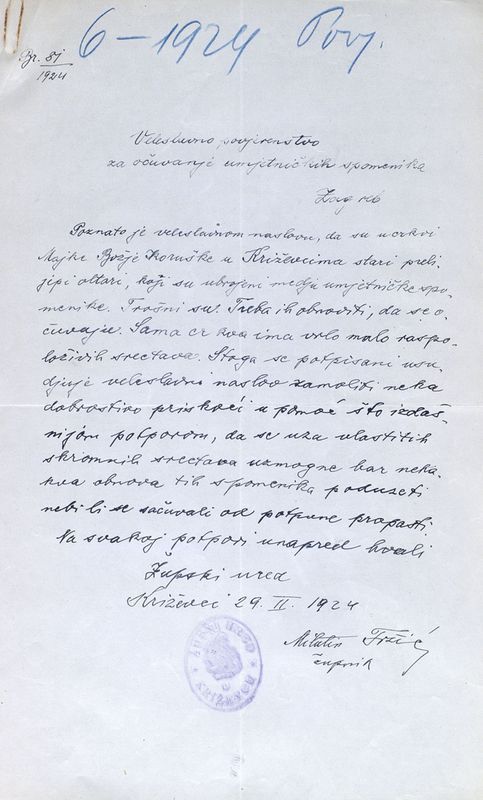 6 – 1924 Povj.
Br. 81
1924
Veleslavno povjerenstvo
za očuvanje umjetničkih spomenika
Zagreb
Poznato je veleslavnom naslovu, da su u crkvi
Majke Božje Koruške u Križevcima stari preli-
jepi oltari, koji su ubrojeni medju umjetničke spo-
menike. Trošni su. Treba ih obnoviti, da se o-
čuvaju. Sama crkva ima vrlo malo raspo-
loživih sredstava. Stoga se potpisani usu-
djuje veleslavni naslov zamoliti neka
dobrostivo priskoči u pomoć što izdaš-
nijom potporom, da se uza vlastitih
skromnih sredstava uzmogne bar neka-
kva obnova tih spomenika poduzeti
nebi li se sačuvali od potpune propasti.
Na svakoj potpori unapred hvali
Župski ured
Križevci 29. II. 1924
Milutin
župnik
ŽUPNI URED